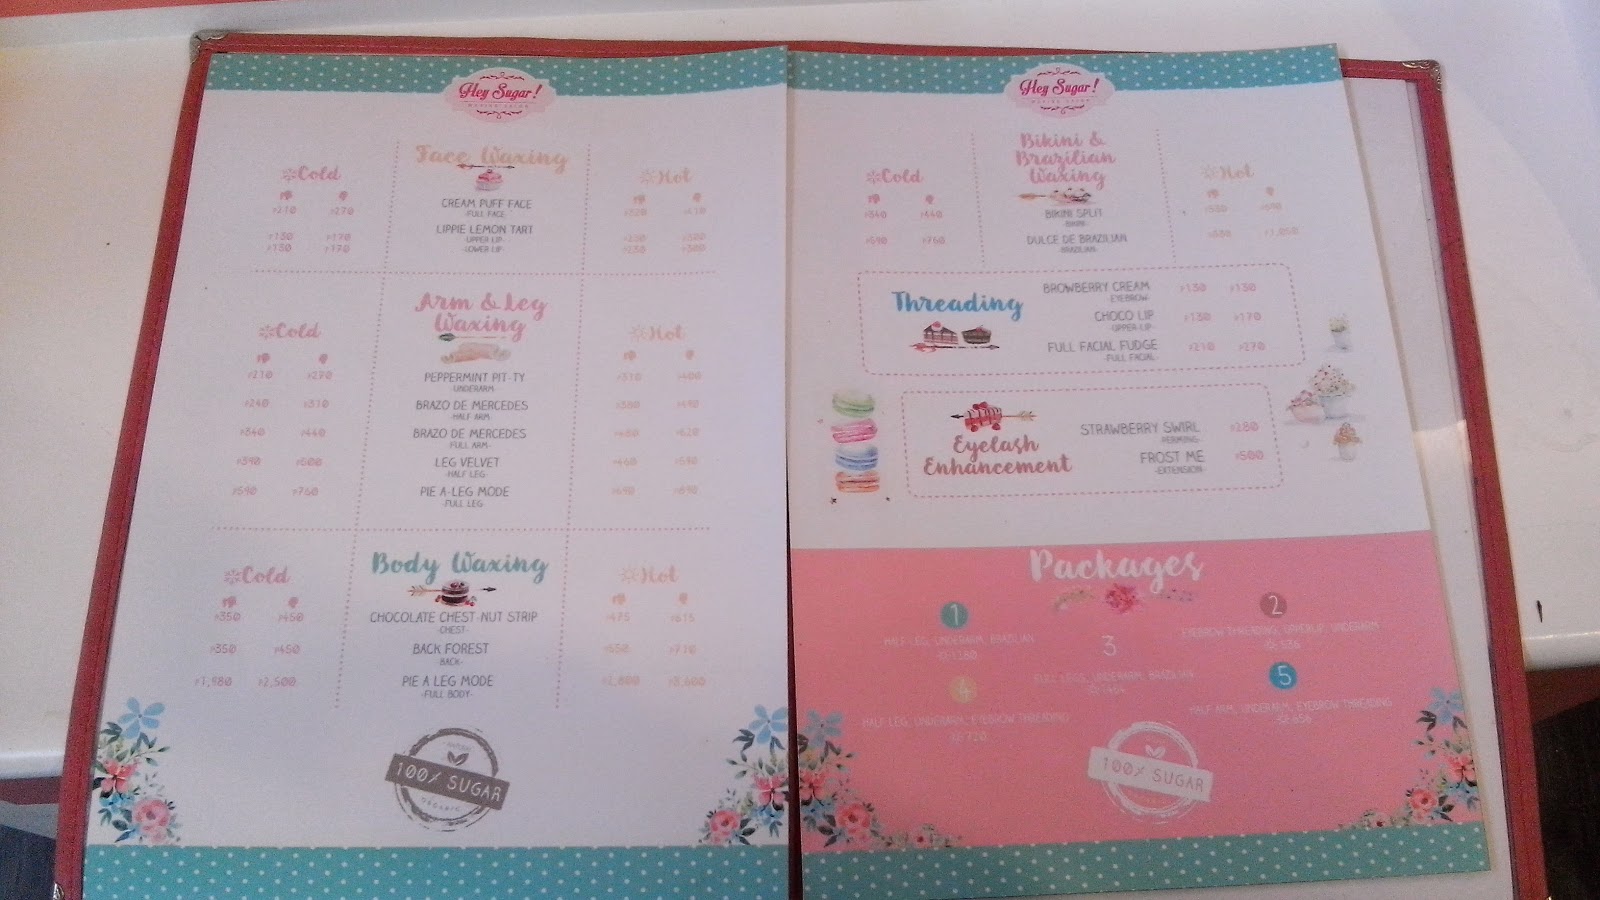 Hey Sugar!
WAXING SALON
Face Waxing
Cold
Hot
CREAM PUFF FACE
-FULL FACE-
₱210 ₱270
₱320 ₱410
LIPPIE LEMON TART
-UPPER LIP-
₱130 ₱170
₱230 ₱300
-LOWER LIP-
₱130 ₱170
₱230 ₱300
Arm & Leg
Waxing
Cold
Hot
PEPPERMINT PIT-TY
-UNDERARM-
₱210 ₱270
₱310 ₱400
BRAZO DE MERCEDES
-HALF ARM-
₱240 ₱310
₱380 ₱490
BRAZO DE MERCEDES
-FULL ARM-
₱340 ₱440
₱480 ₱620
LEG VELVET
-HALF LEG-
₱390 ₱500
₱460 ₱590
PIE A-LEG MODE
-FULL LEG-
₱590 ₱760
₱690 ₱890
Body Waxing
Cold
Hot
CHOCOLATE CHEST-NUT STRIP
-CHEST-
₱350 ₱450
₱475 ₱615
BACK FOREST
-BACK-
₱350 ₱450
₱550 ₱710
PIE A LEG MODE
-FULL BODY-
₱1,980 ₱2,500
₱2,800 ₱3,600
NATURAL
100% SUGAR
ORGANIC
Hey Sugar!
WAXING SALON
Bikini &
Brazilian
Waxing
Cold
Hot
BIKINI SPLIT
-BIKINI-
₱340 ₱440
₱530 ₱690
DULCE DE BRAZILIAN
-BRAZILIAN-
₱590 ₱760
₱1,050
Threading
BROWBERRY CREAM
-EYEBROW-
₱130 ₱130
CHOCO LIP
-UPPER LIP-
₱130 ₱170
FULL FACIAL FUDGE
-FULL FACIAL-
₱210 ₱270
Eyelash
Enhancement
STRAWBERRY SWIRL ₱280
-PERMING-
FROST ME ₱500
-EXTENSION-
Packages
1
HALF LEG, UNDERARM, BRAZILIAN
2
EYEBROW THREADING, UPPERLIP, UNDERARM
3
FULL LEGS, UNDERARM, BRAZILIAN
4
HALF LEG, UNDERARM, EYEBROW THREADING
720
5
HALF ARM, UNDERARM, EYEBROW THREADING
100% SUGAR